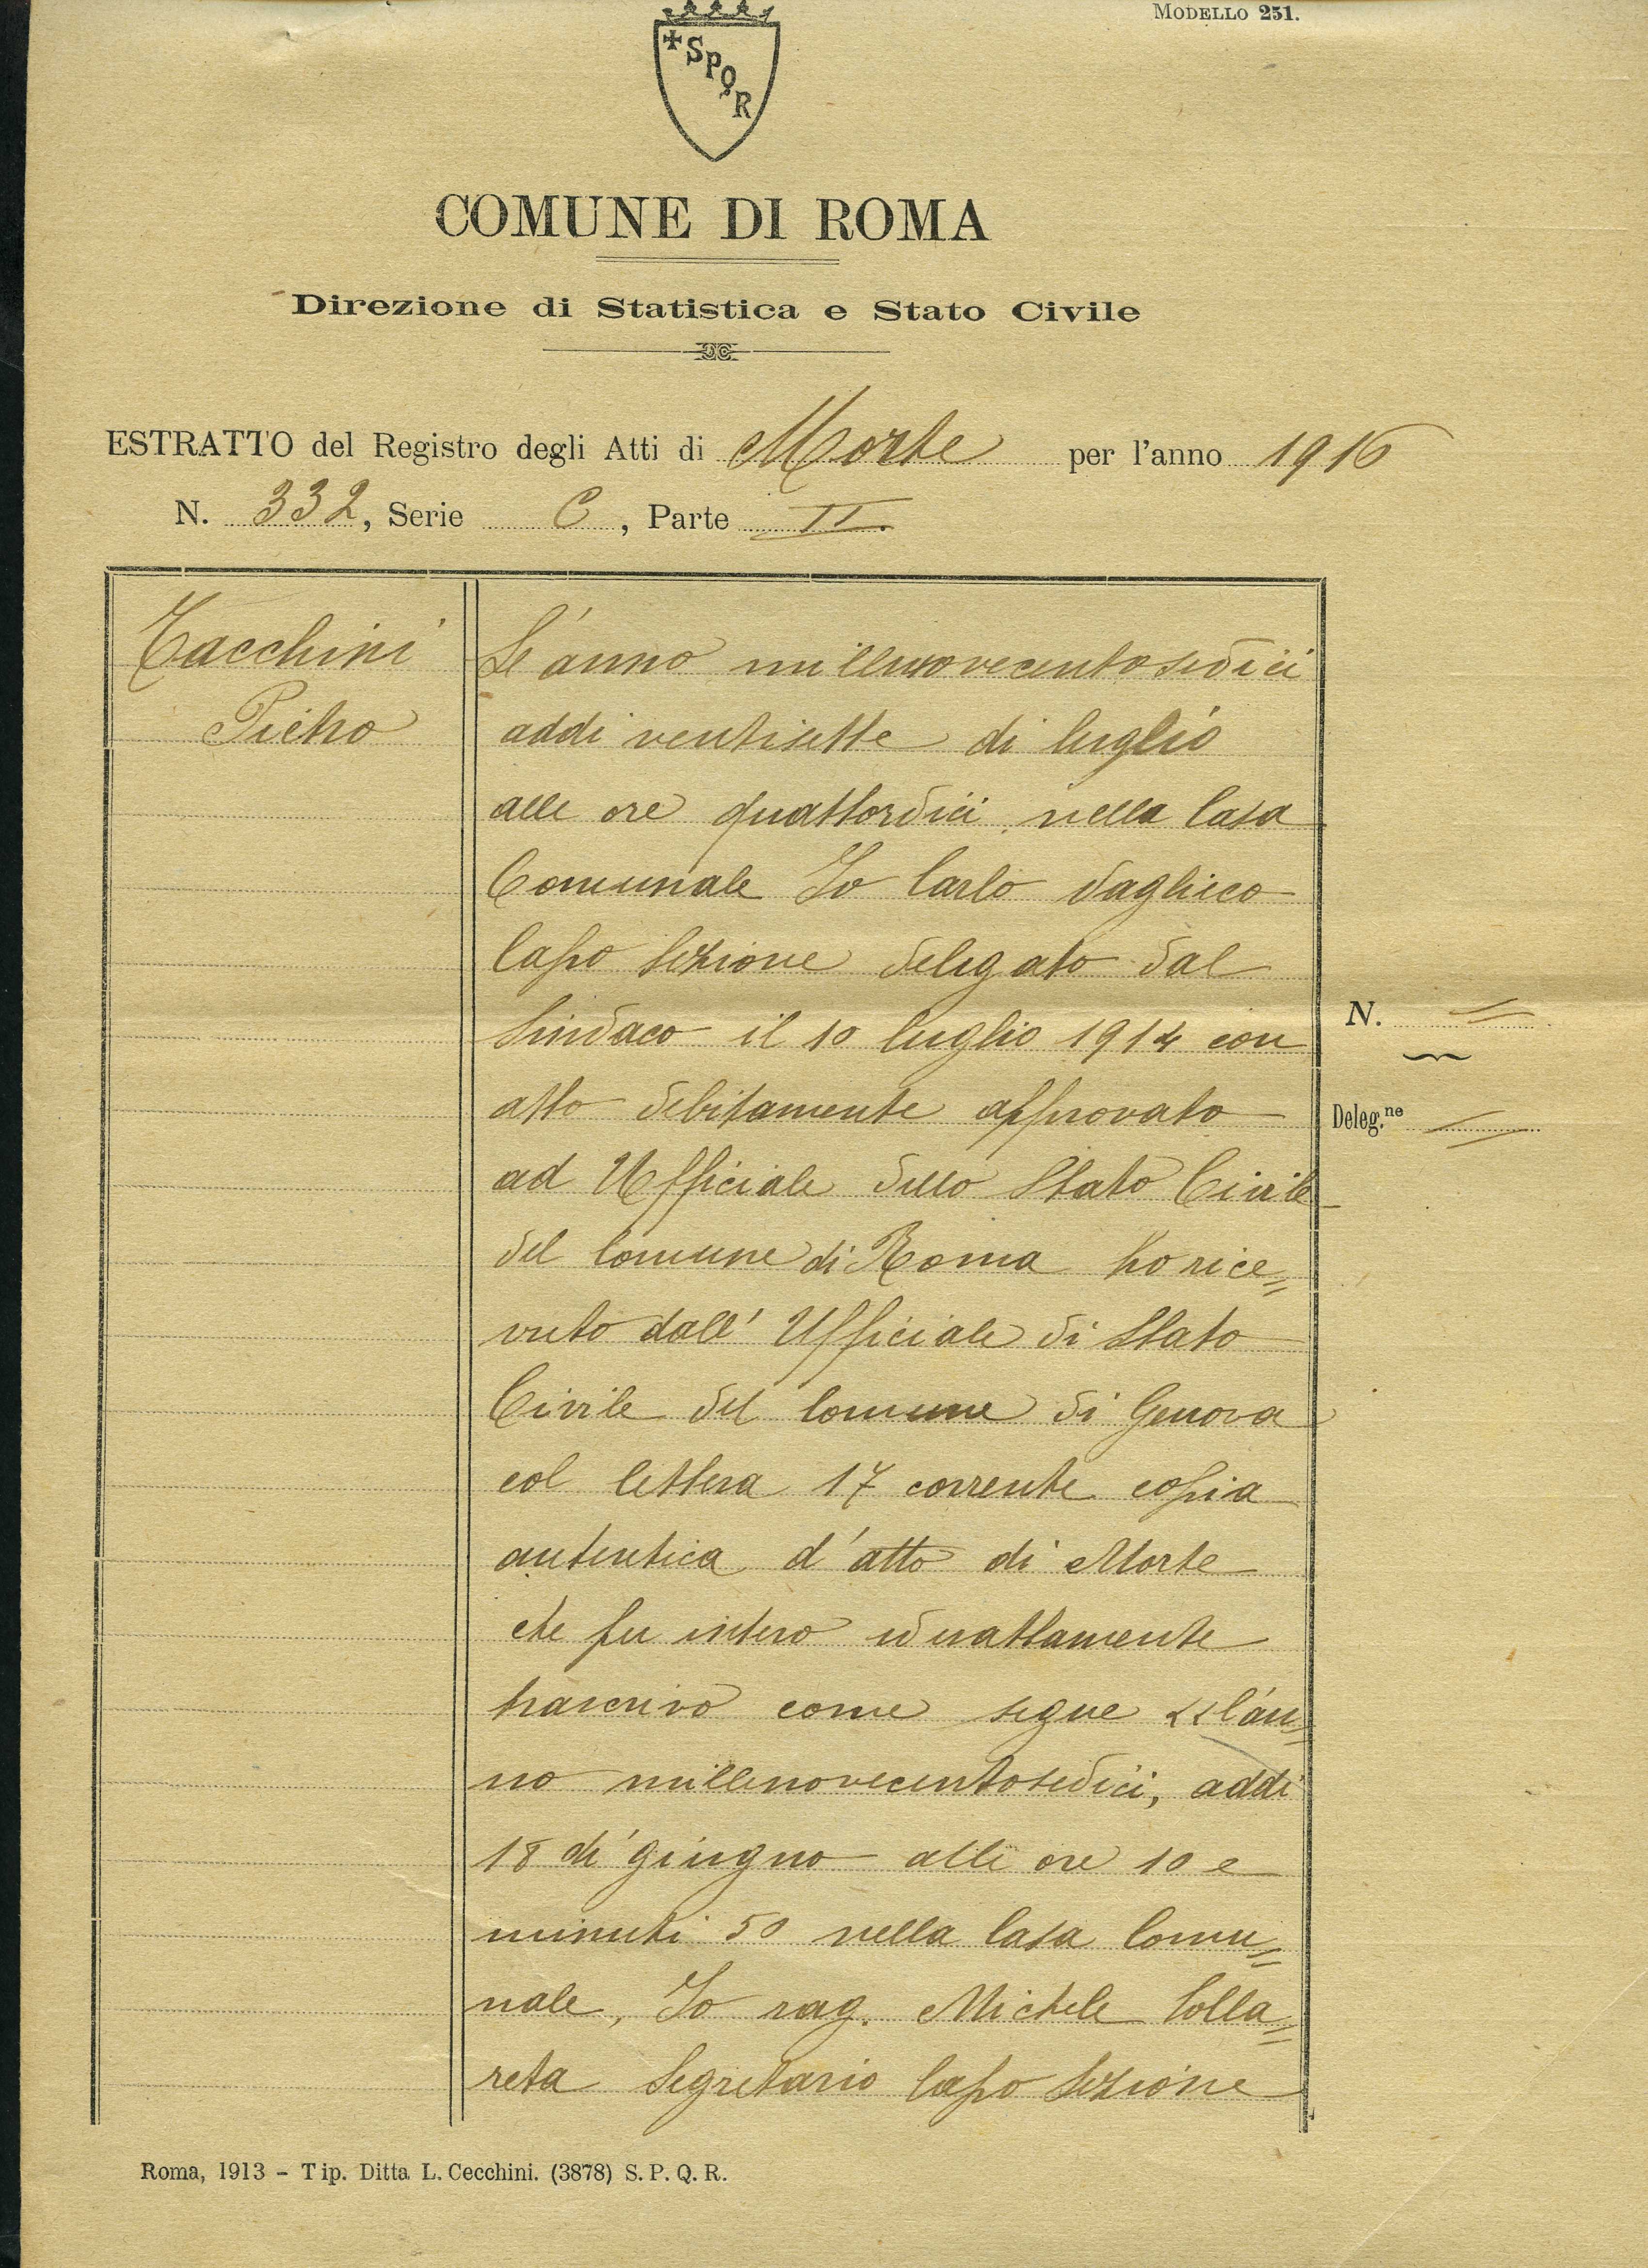 MODELLO 251.
SPQR
COMUNE DI ROMA
Direzione di Statistica e Stato Civile
ESTRATTO del Registro degli Atti di Morte per l'anno 1916
N. 332, Serie C, Parte II.
Tacchini
Pietro
L'anno millenovecentosedici
addì ventisette di luglio
alle ore quattordici nella Casa
Comunale Io Carlo
Capo Sezione delegato dal
Sindaco il 10 luglio 1914 con
atto debitamente approvato
ad Ufficiale dello Stato Civile
del Comune di Roma ho rice=
vuto dall' Ufficiale di Stato
Civile del Comune di Genova
col lettera 17 corrente copia
autentica d'atto di Morte
che fu intero ed esattamente
trascrivo come segue «l'an=
no millenovecentosedici, addì
18 di giugno alle ore 10 e
minuti 50 nella Casa Comu=
nale, Io rag. Michele Colla=
reta Segretario Capo Sezione
N. =
Deleg.ne =
Roma, 1913 - Tip. Ditta L. Cecchini. (3878) S. P. Q. R.